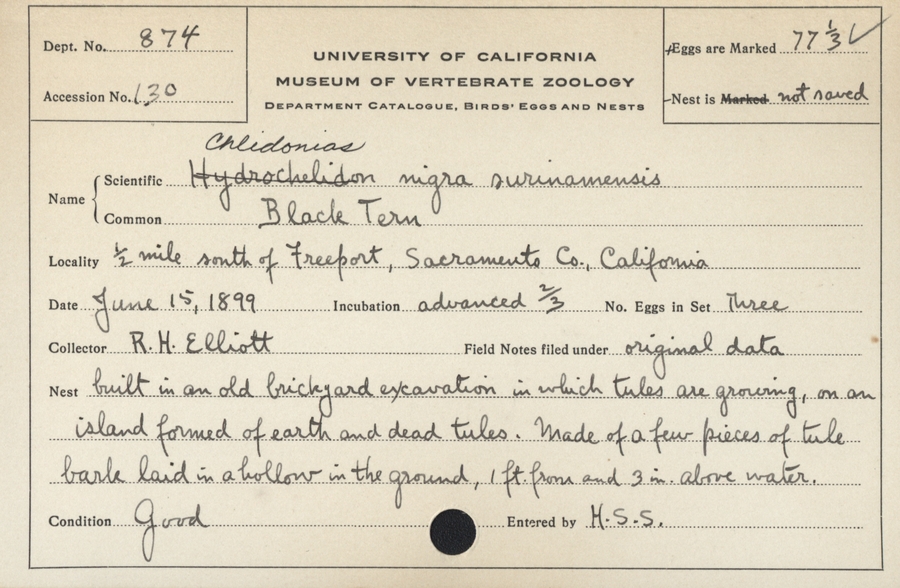 Dept. No. 874
Accession No. 130
UNIVERSITY OF CALIFORNIA
MUSEUM OF VERTEBRATE ZOOLOGY
DEPARTMENT CATALOGUE, BIRDS' EGGS AND NESTS
Eggs are Marked 77 1/3 ✓
Nest is Marked not saved
Chlidonias
Name { Scientific Hydrochelidon nigra surinamensis
Common Black Tern
Locality 1/2 mile south of Freeport, Sacramento Co., California
Date June 15, 1899 Incubation advanced 2/3 No. Eggs in Set Three
Collector R. H. Elliott Field Notes filed under original data
Nest built in an old brickyard excavation in which tules are growing, on an
island formed of earth and dead tules. Made of a few pieces of tule
bark laid in a hollow in the ground, 1 ft. from and 3 in. above water.
Condition Good Entered by H.S.S.